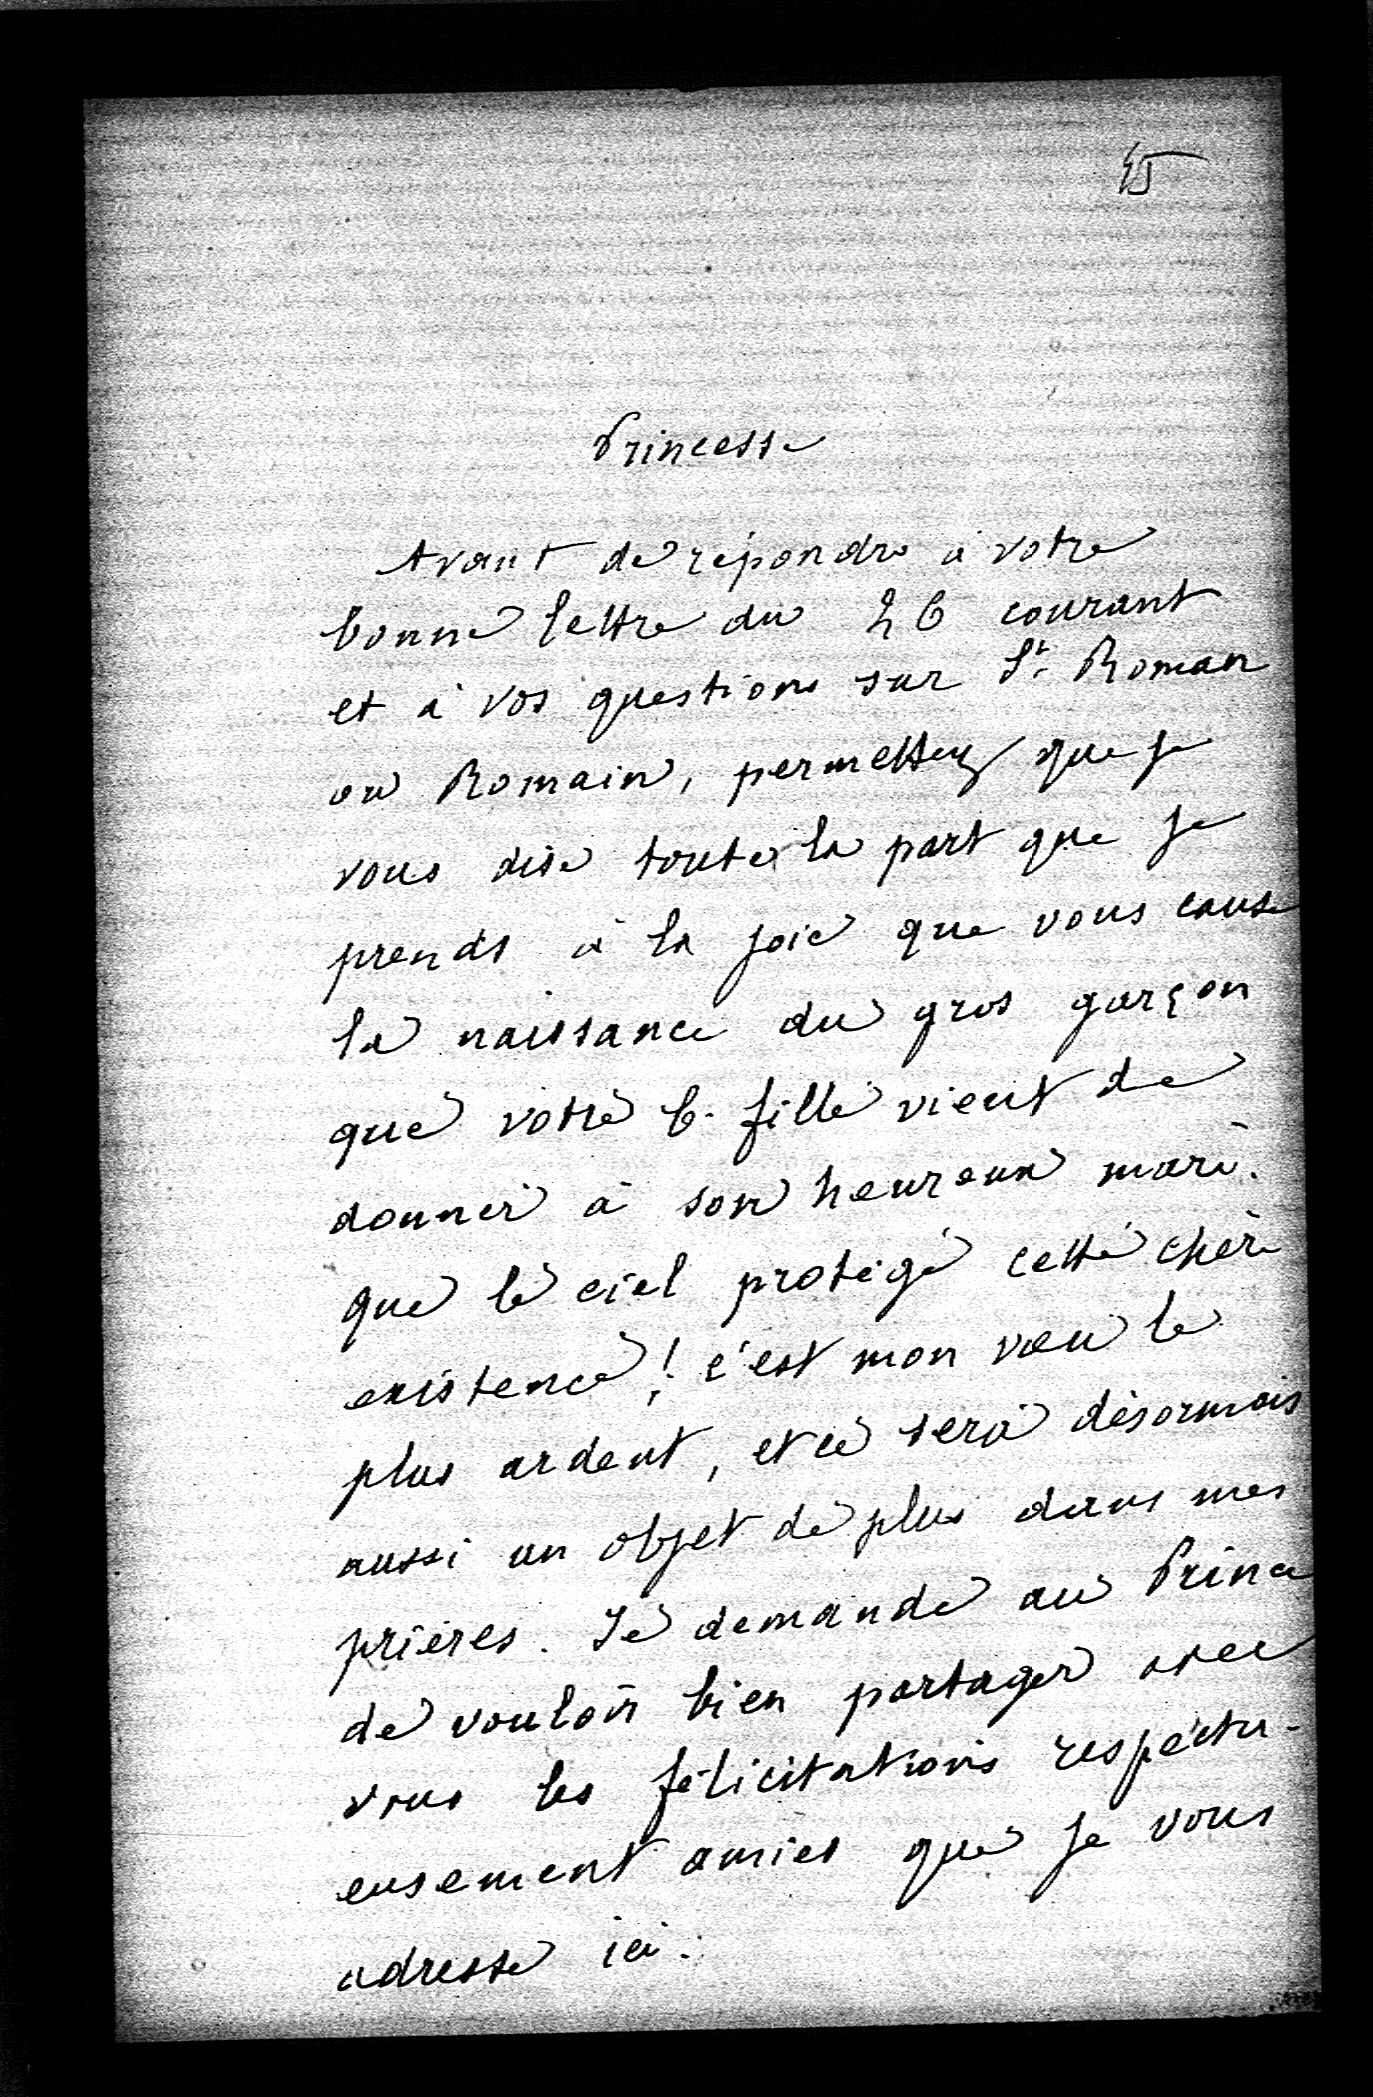 45
Princesse
Avant de répondre à votre
bonne lettre du 26 courant
et à vos questions sur St. Roman
ou Romain, permettez que je
vous dise toute la part que je
prends à la joie que vous cause
la naissance du gros garçon
que votre b. fille vient de
donner à son heureux mari.
que le ciel protège cette chère
existence ! c'est mon vœu le
plus ardent, et ce sera désormais
aussi un objet de plus dans mes
prières. Je demande au Prince
de vouloir bien partager avec
vous les félicitations respectu-
eusement amies que je vous
adresse ici.